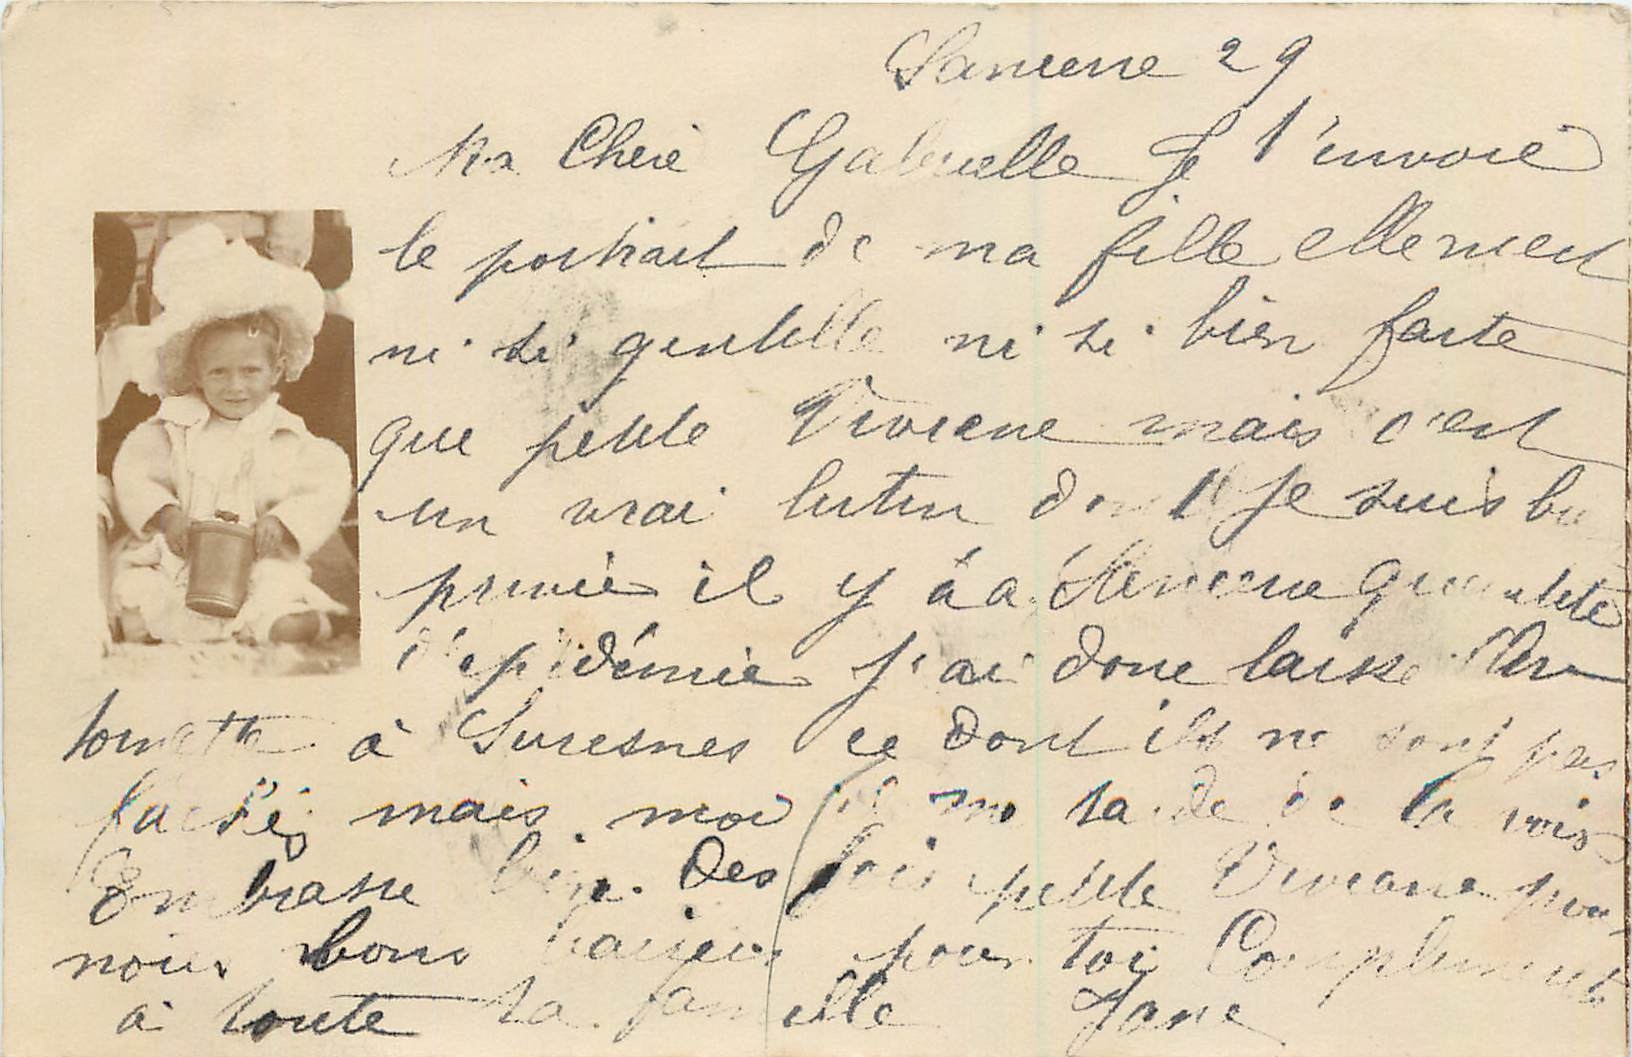 Sancerre 29
Ma Cherie Gabrielle Je t'envoie
le portrait de ma fille elle n'est
ni si gentille ni si bien faite
que petite Viviane mais c'est
un vrai lutin dont Je suis bien
privée il y à a Sancerre quantité
d'epidémie j'ai donc laissé
tonnette à Suresnes ce dont ils ne sont pas
fachés mais moi il me tarde de la voir
Embrasse bien des fois petite Viviane pour
nous bons baisers pour toi Compliments
à toute ta famille Jane